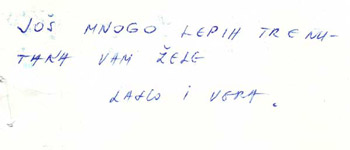 JOŠ MNOGO LEPIH TRENU-
TAKA VAM ŽELE
LAJLO I VERA.